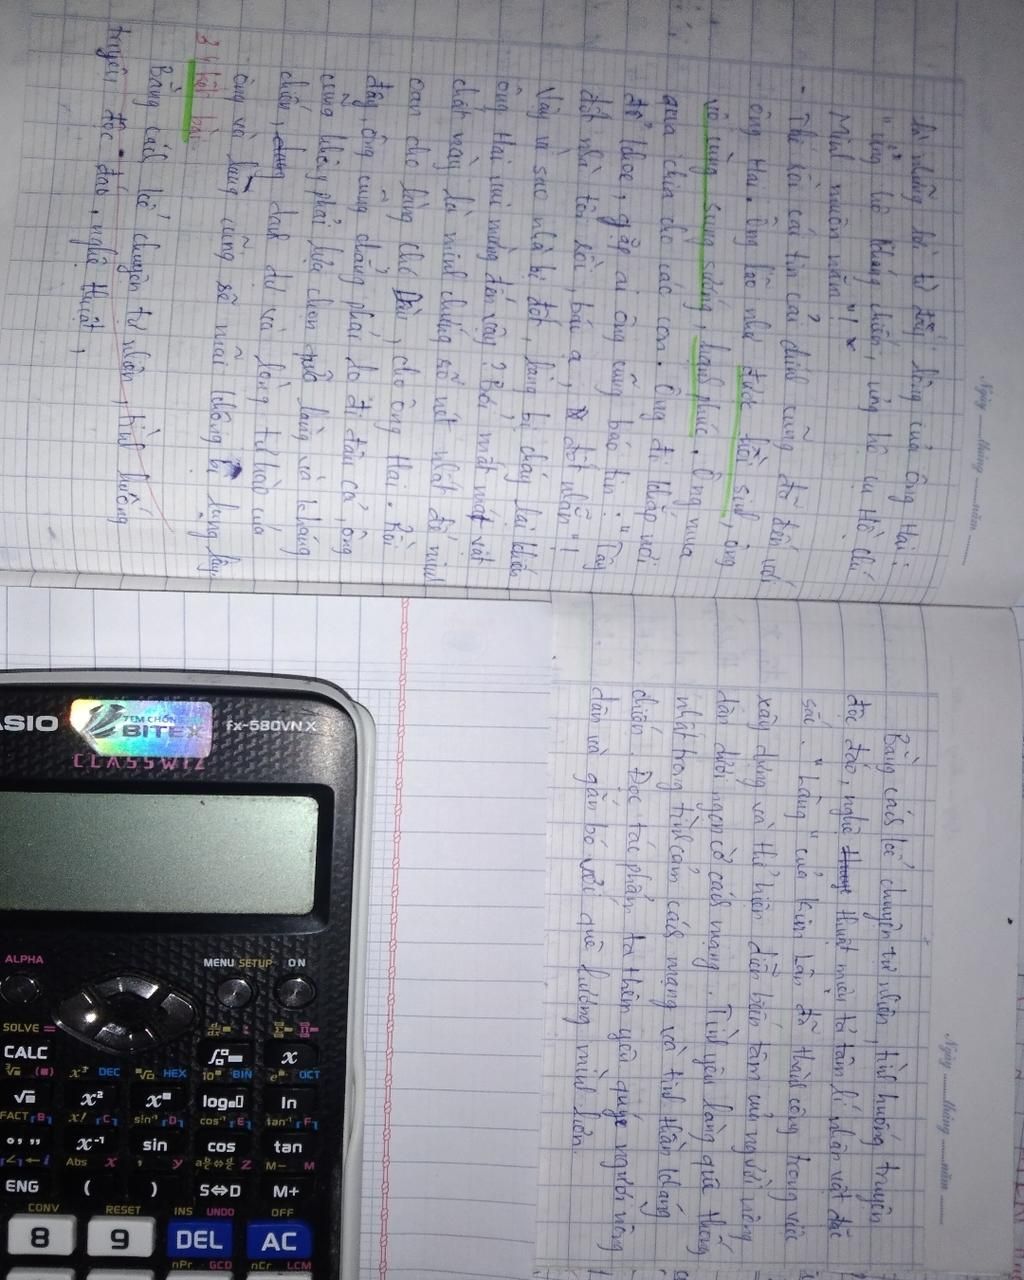 Ngày ...... tháng ...... năm ......
là những lời từ đáy lòng của ông Hai:
"ủng hộ kháng chiến, ủng hộ cụ Hồ Chí
Minh muôn năm"!
- Thế rồi cái tin cải chính cũng đã đến với
ông Hai. Ông lão như được hồi sinh, ông
vô cùng sung sướng, hạnh phúc. Ông mua
quà chia cho các con. Ông đi khắp nơi
để khoe, gặp ai ông cũng báo tin: "Tây
đốt nhà tôi rồi, bác ạ, đốt nhẵn"!
Vậy vì sao nhà bị đốt, làng bị cháy lại khiến
ông Hai vui mừng đến vậy? Bởi mất mát vật
chất này là minh chứng rõ nét nhất để minh
oan cho làng chợ Dầu, cho ông Hai. Rồi
đây, ông cũng chẳng phải lo đi đâu cả, ông
cũng không phải lựa chọn giữa làng và kháng
chiến, danh dự và lòng tự hào của
ông và làng cũng sẽ mãi không bị lung lay.
3, kết bài:
Bằng cách kể chuyện tự nhiên, tình huống
truyện độc đáo, nghệ thuật,
Ngày ...... tháng ...... năm ......
Bằng cách kể chuyện tự nhiên, tình huống truyện
độc đáo, nghệ thuật miêu tả tâm lí nhân vật đặc
sắc. "Làng" của Kim Lân đã thành công trong việc
xây dựng và thể hiện diễn biến tâm của người nông
dân dưới ngọn cờ cách mạng. Tình yêu làng quê thống
nhất trong tình cảm cách mạng và tinh thần kháng
chiến. Đọc tác phẩm ta thêm yêu quý người nông
dân và gắn bó với quê hương mình hơn.
TEM CHỐNG
BITEX
fx-580VN X
CLASSWIZ
ALPHA MENU SETUP ON
SOLVE =
CALC x
DEC HEX BIN OCT
x² log ln
FACT B x! C sin⁻¹ D cos⁻¹ E tan⁻¹ F
x⁻¹ sin cos tan
Abs x , y M− M
ENG ( ) S⇔D M+
CONV RESET INS UNDO OFF
8 9 DEL AC
nPr GCD nCr LCM